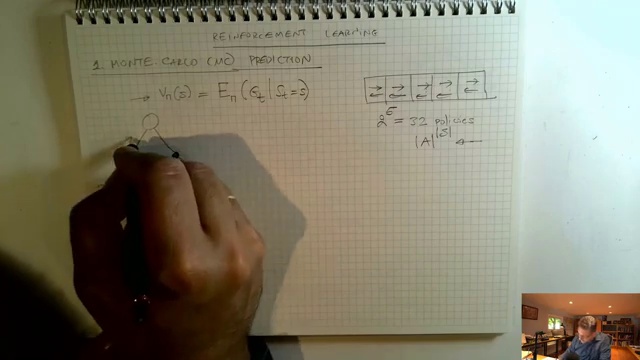 REINFORCEMENT LEARNING
1. MONTE-CARLO (MC) PREDICTION
→ Vπ(s) = Eπ(Gt | St = s)
2^5 = 32 policies
|A|^|S| ←